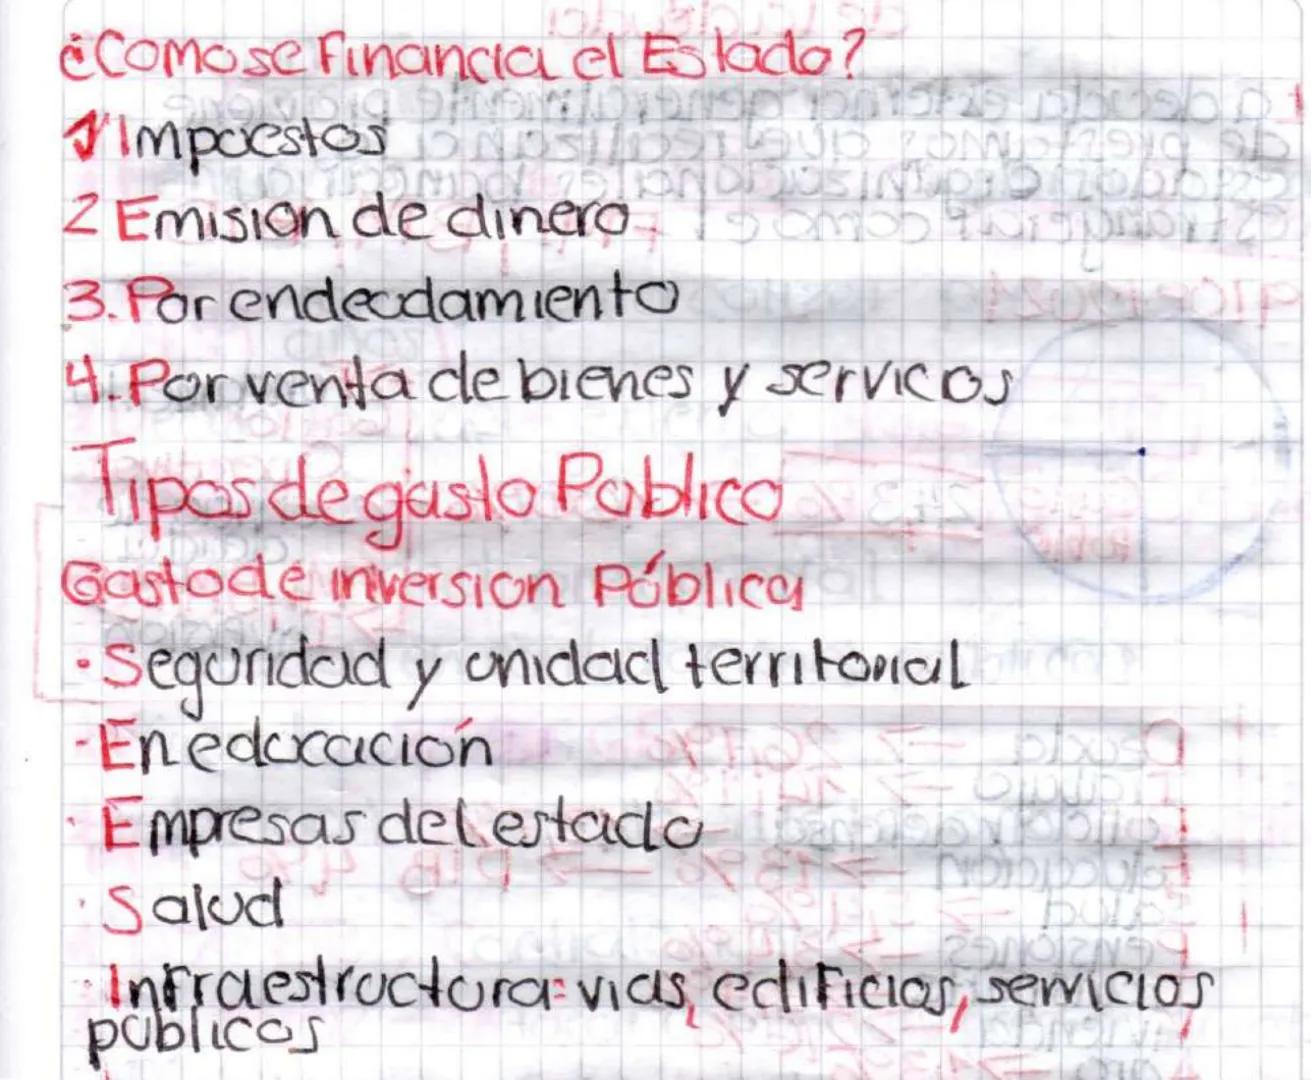 ¿Como se Financia el Estado?
1 Impuestos
2 Emision de dinero
3. Por endeudamiento
4. Por venta de bienes y servicos
Tipos de gasto Publico
Gasto de inversion Pública
· Seguridad y unidad territorial
- En educación
· Empresas del estado
· Salud
· Infraestructura: vias, edificios, servicios
publicos